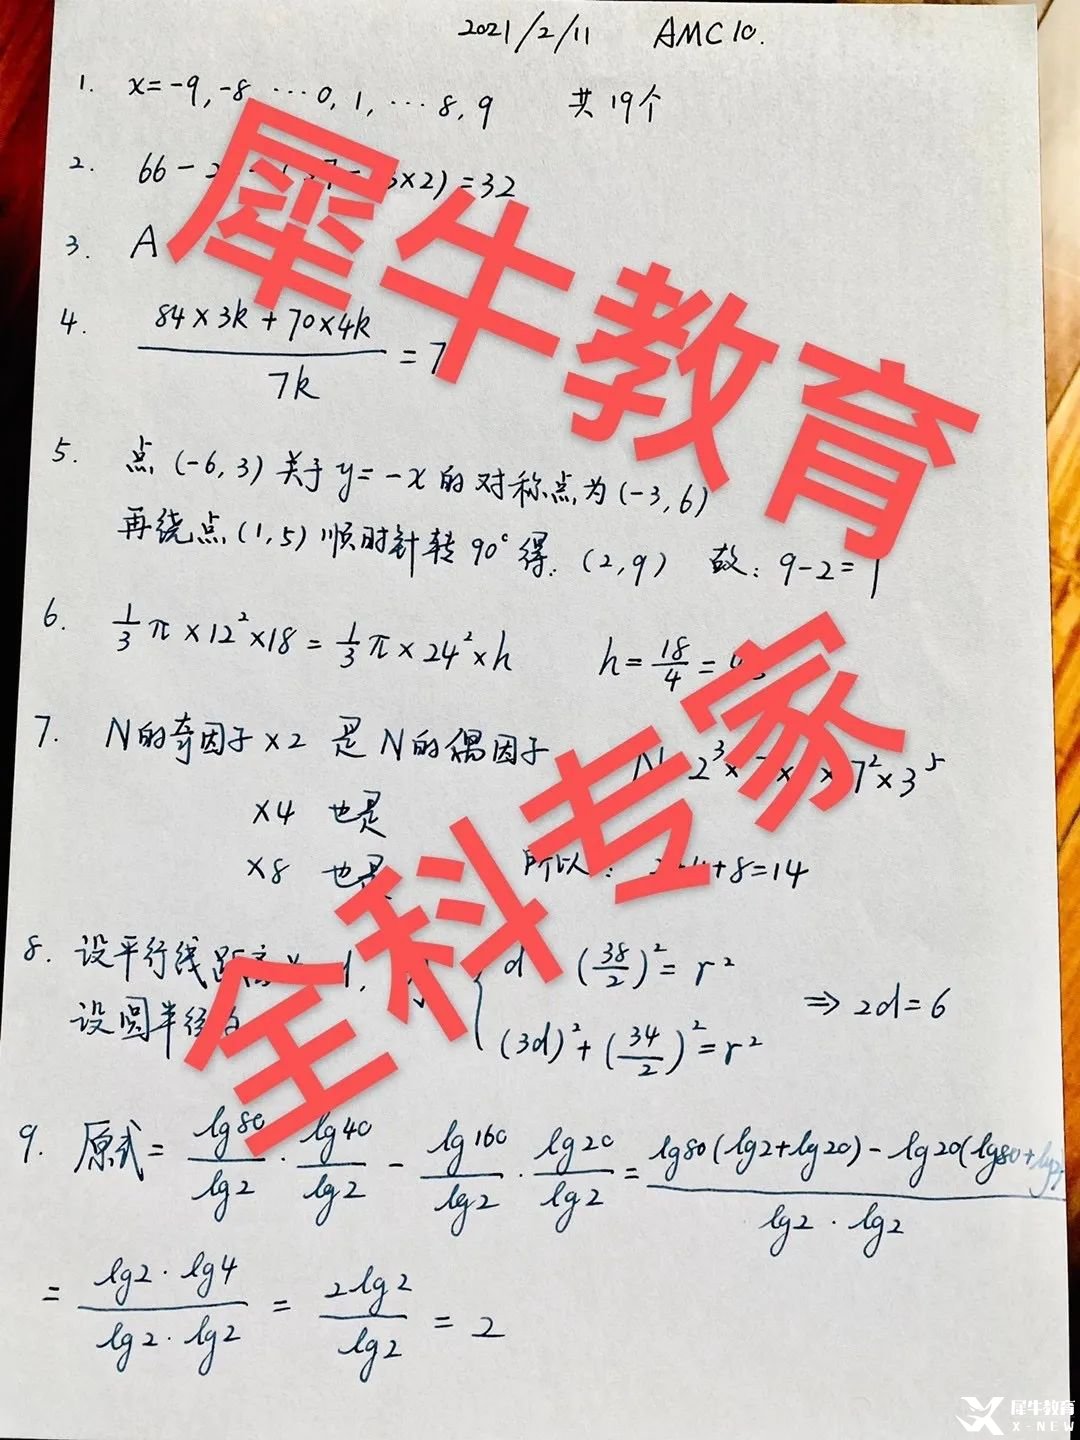 2021/2/11 AMC10.
1. x=-9,-8 ⋯0,1,⋯8,9 共19个
2. 66-2 ×2)=32
3. A
4. (84×3k+70×4k)/7k=7
5. 点(-6,3)关于y=-x的对称点为(-3,6)
再绕点(1,5)顺时针转90°得.(2,9) 故:9-2=
6. 1/3π×12²×18=1/3π×24²×h h=18/4=
7. N的奇因子×2 是N的偶因子 2³× 7²×3⁵
×4 也是
×8 也是 所以: +8=14
8. 设平行线距 d (38/2)²=r²
设圆半径 (3d)²+(34/2)²=r² ⇒2d=6
9. 原式=lg80/lg2·lg40/lg2-lg160/lg2·lg20/lg2=(lg80(lg2+lg20)-lg20(lg80+lg2)/(lg2·lg2)
=(lg2·lg4)/(lg2·lg2)=2lg2/lg2=2
犀牛教育
全科专家
犀牛教育
X-NEW